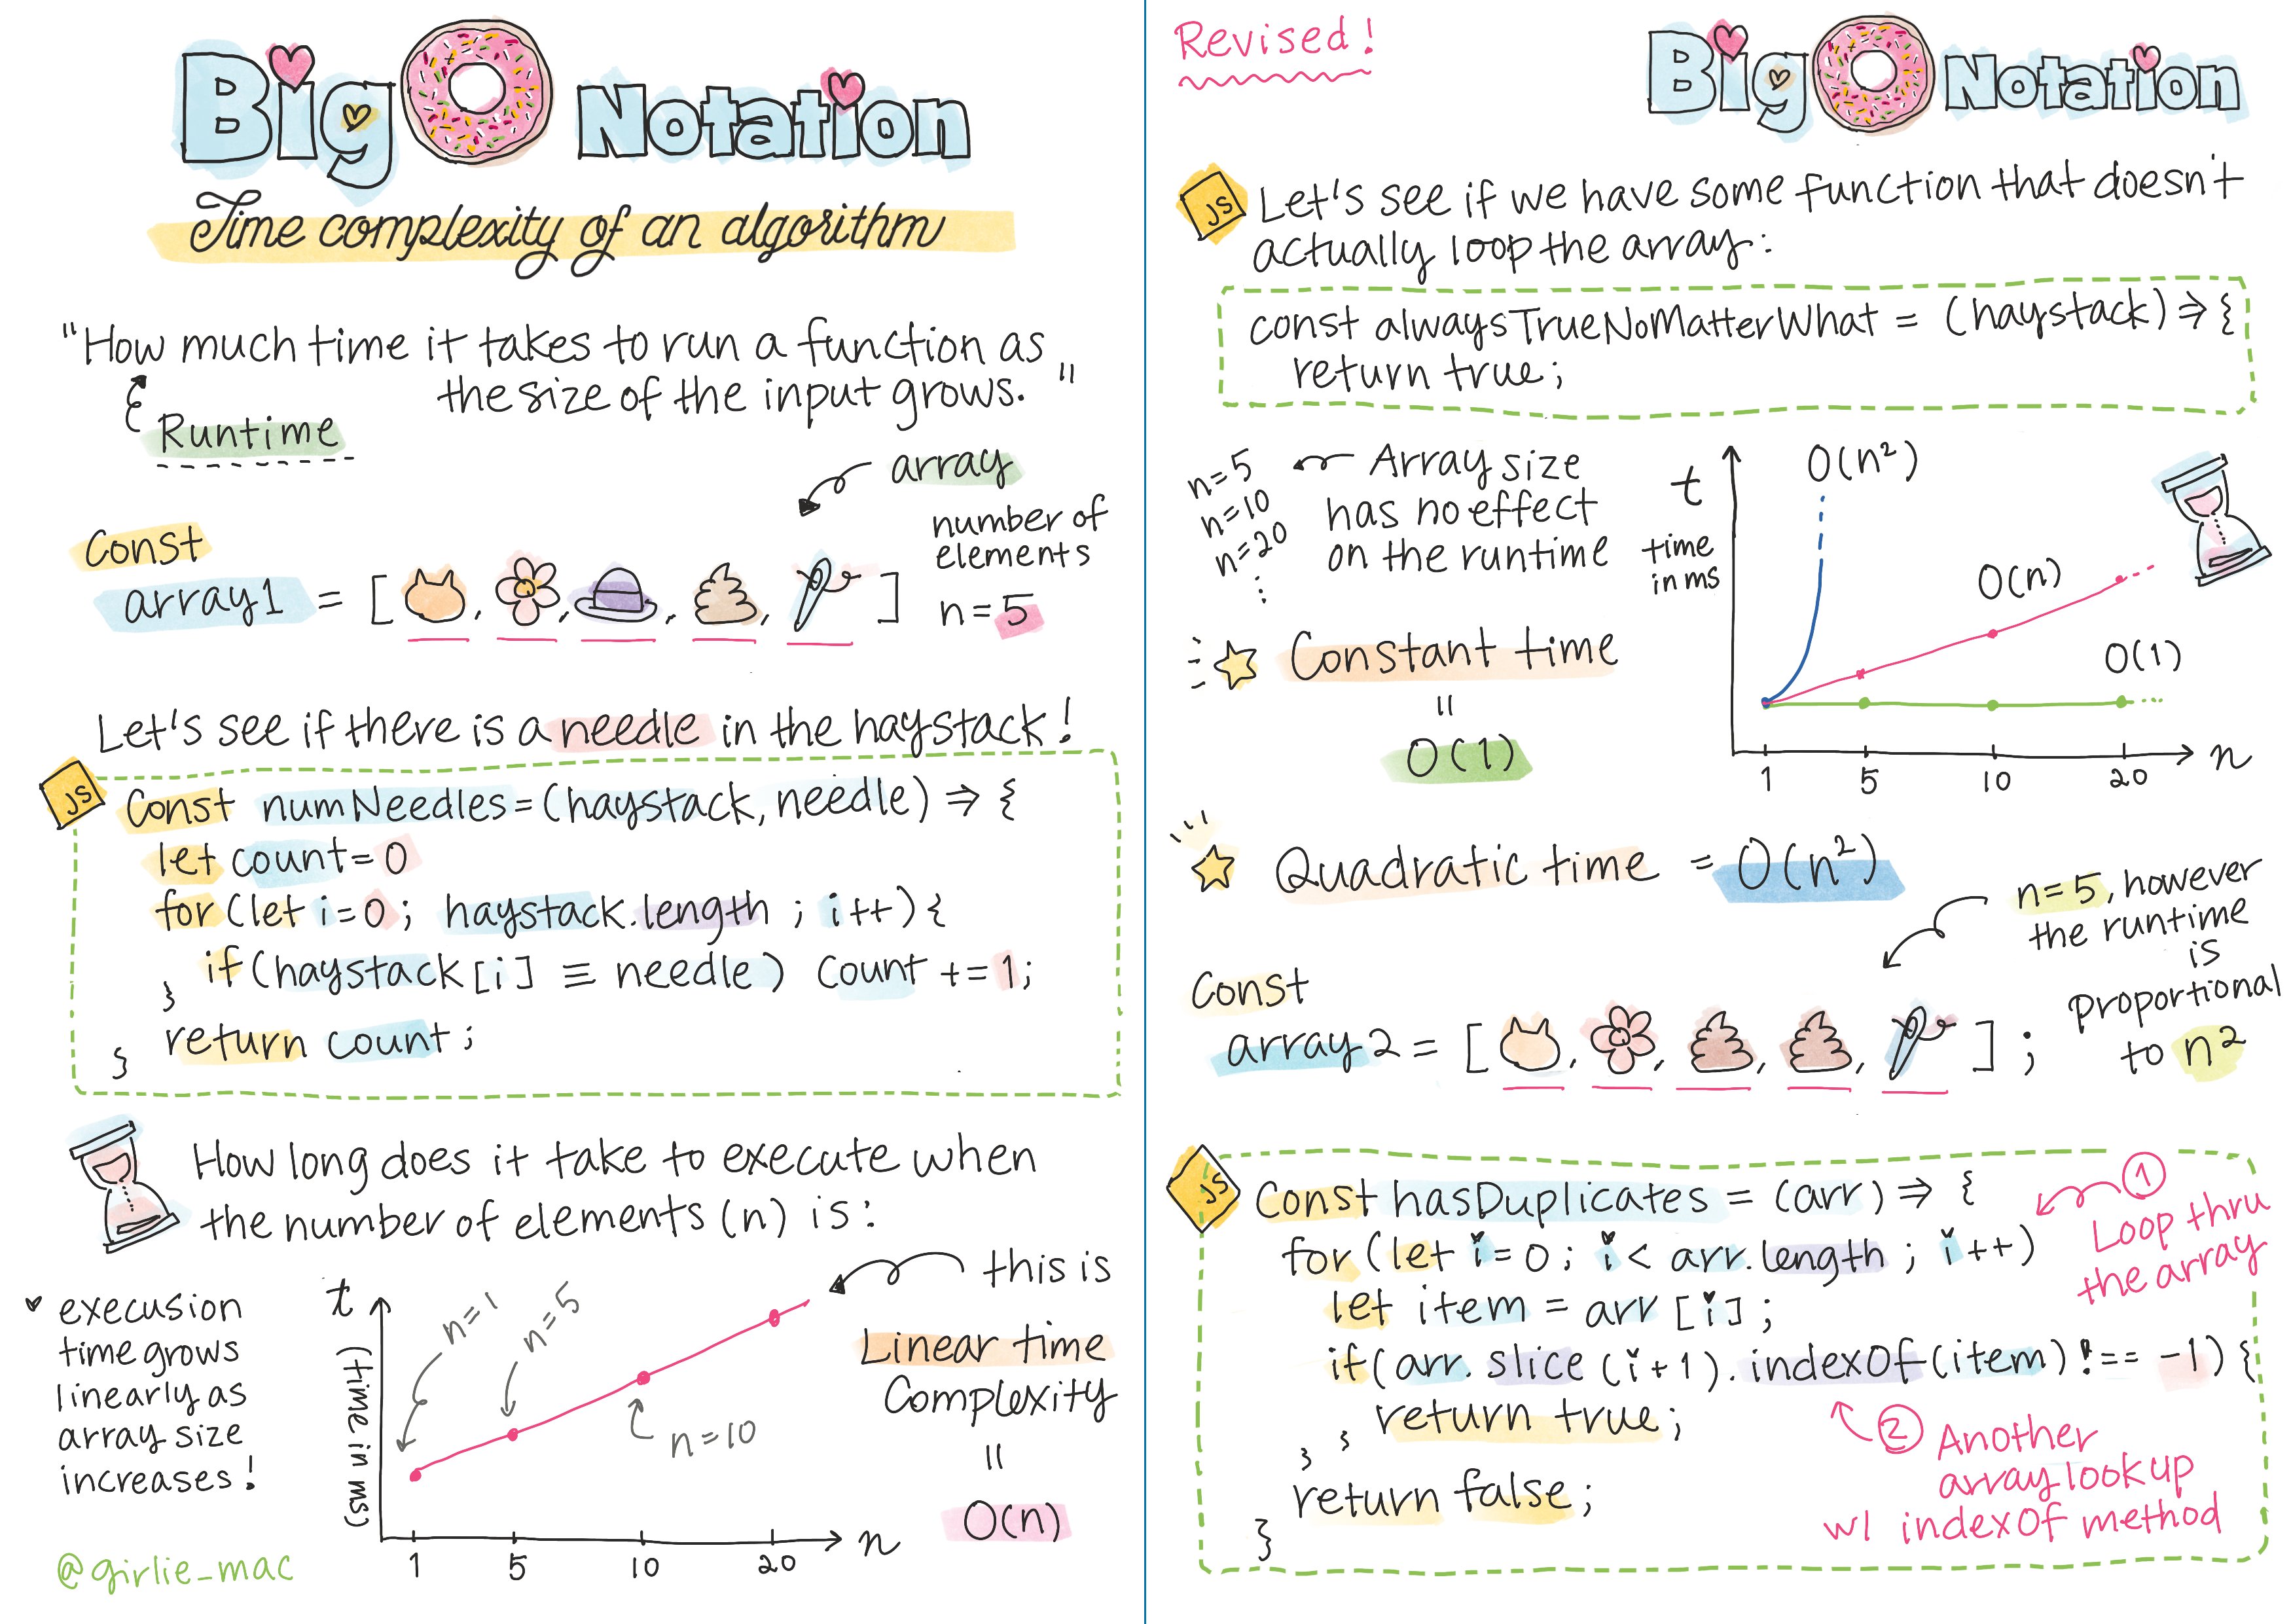 Big O Notation
Time complexity of an algorithm
"How much time it takes to run a function as
the size of the input grows."
Runtime
array
Const
array1 = [ , , , , ]
number of
elements
n=5
Let's see if there is a needle in the haystack!
JS
Const numNeedles=(haystack, needle) => {
let count=0
for(let i=0; haystack.length; i++){
if(haystack[i] ≡ needle) count += 1;
}
return count;
}
How long does it take to execute when
the number of elements (n) is:
execusion
time grows
linearly as
array size
increases!
t
(time in ms)
n=1
n=5
n=10
1 5 10 20 n
this is
Linear time
Complexity
=
O(n)
@girlie_mac
Revised!
Big O Notation
JS
Let's see if we have some function that doesn't
actually loop the array:
const alwaysTrueNoMatterWhat = (haystack) => {
return true;
n=5
n=10
n=20
⋮
Array size
has no effect
on the runtime
Constant time
=
O(1)
t
time
in ms
O(n²)
O(n)
O(1)
1 5 10 20 n
Quadratic time = O(n²)
n=5, however
the runtime
is
proportional
to n²
Const
array2 = [ , , , , ];
JS
Const hasDuplicates = (arr) => {
for (let i=0; i< arr.length; i++)
let item = arr[i];
if(arr.slice(i+1).indexOf(item) !== -1) {
return true;
} }
return false;
}
① Loop thru
the array
② Another
array look up
w/ indexOf method